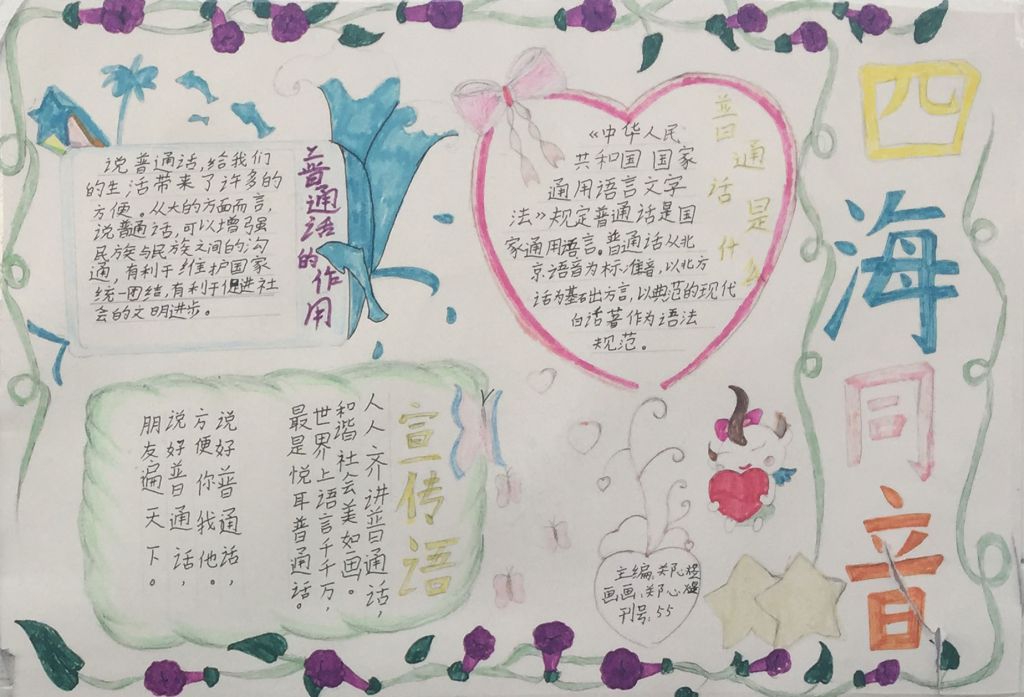 四海同音
普通话的作用
说普通话,给我们
的生活带来了许多的
方便。从大的方面而言,
说普通话,可以增强
民族与民族之间的沟
通,有利于维护国家
统一团结,有利于促进社
会的文明进步。
普通话是什么
《中华人民
共和国国家
通用语言文字
法》规定普通话是国
家通用语言。普通话从北
京语音为标准音,以北方
话为基础出方言,以典范的现代
白话著作为语法
规范。
宣传语
人人齐讲普通话,
和谐社会美如画。
世界上语言千千万,
最是悦耳普通话。
说好普通话,
方便你我他。
说好普通话,
朋友遍天下。
主编:郑心
画画:郑心
刊号:55